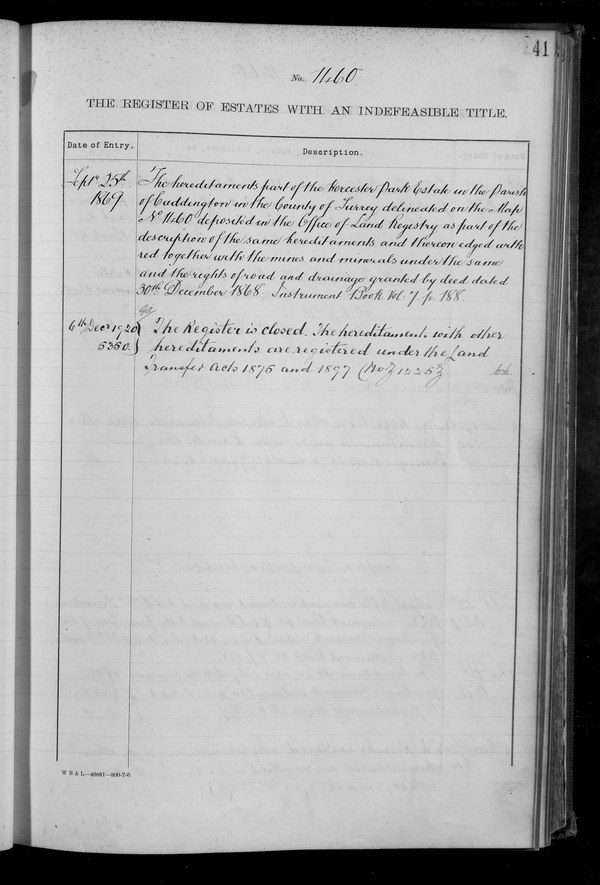 41
No. 1460
THE REGISTER OF ESTATES WITH AN INDEFEASIBLE TITLE.
Date of Entry. Description.
Septr 25th The hereditaments part of the Worcester Park Estate in the Parish
1869 of Cuddington in the County of Surrey delineated on the Map
No 1460 deposited in the Office of Land Registry as part of the
description of the same hereditaments and thereon edged with
red together with the mines and minerals under the same
and the rights of road and drainage granted by deed dated
30th December 1868. Instrument Book Vol. 7 p. 188.
6th Decr 1920 The Register is closed. The hereditaments with other
5350. hereditaments are registered under the Land
Transfer Acts 1875 and 1897
W B & L—49881—800-7-6